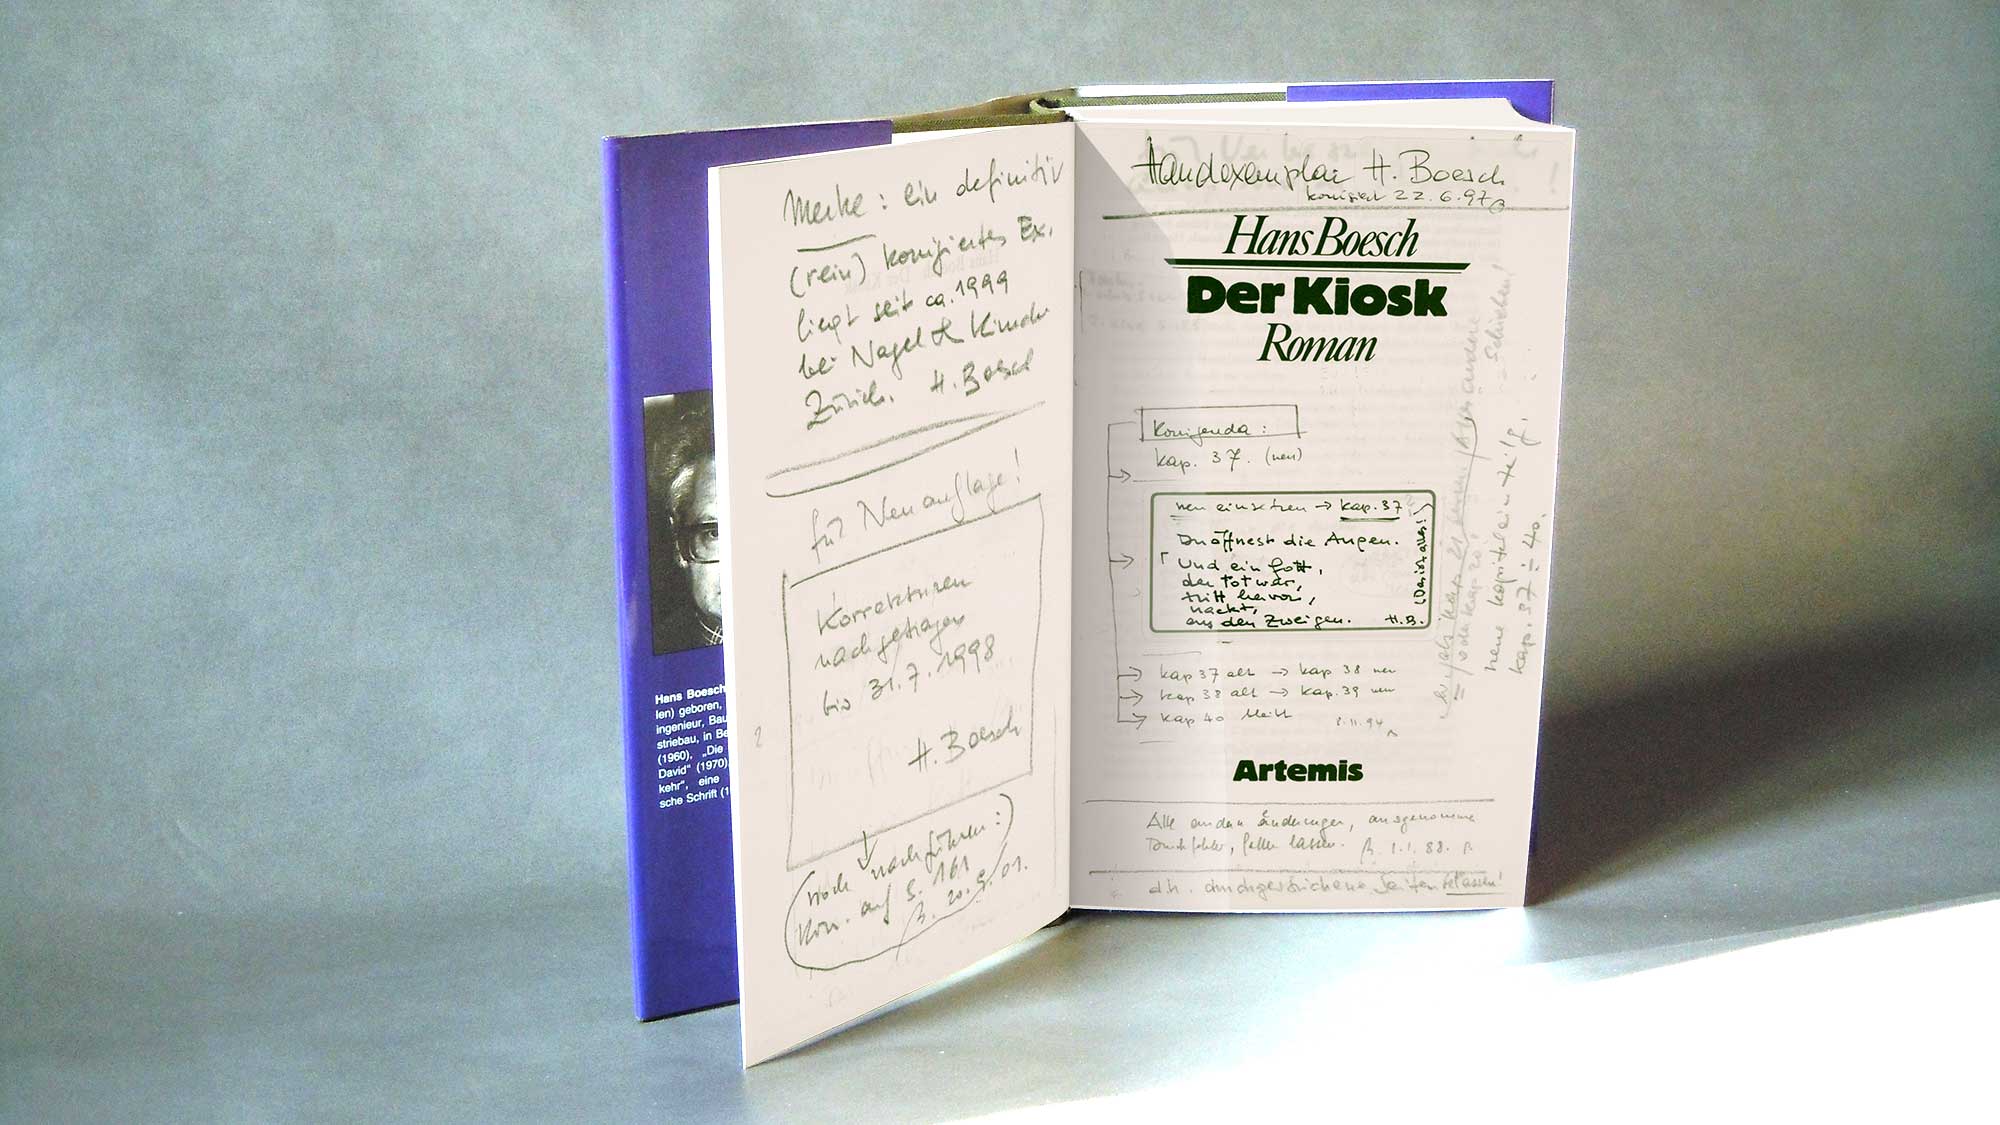 Merke: ein definitiv
(rein) korrigiertes Ex.
liegt seit ca. 1999
bei Nagel + Kimche
Zürich. H. Boesch
für Neuauflage!
Korrekturen
nachgetragen
bis 31.7.1998
H. Boesch
noch nachführen:
Korr. auf S. 161
20.9.01.
Hans Boesch
len) geboren,
ingenieur, Bau
striebau, in Be
(1960), „Die
David“ (1970),
kehr“, eine
sche Schrift (1
Handexemplar H. Boesch
korrigiert 22.6.97
Hans Boesch
Der Kiosk
Roman
Korrigenda:
Kap. 37. (neu)
neu einsetzen → Kap. 37
Du öffnest die Augen.
Und ein Gott,
der tot war,
tritt hervor,
nackt,
aus den Zweigen. H.B.
(Das ist alles!)
Kap 37 alt → Kap 38 neu
Kap 38 alt → Kap. 39 neu
Kap 40 bleibt
neue Kapiteleinteilg.
Kap. 37 ÷ 40.
Artemis
Alle andern Änderungen, ausgenommen
Druckfehler, fallen lassen. 1.1.88.
d.h. durchgestrichene Seiten belassen!